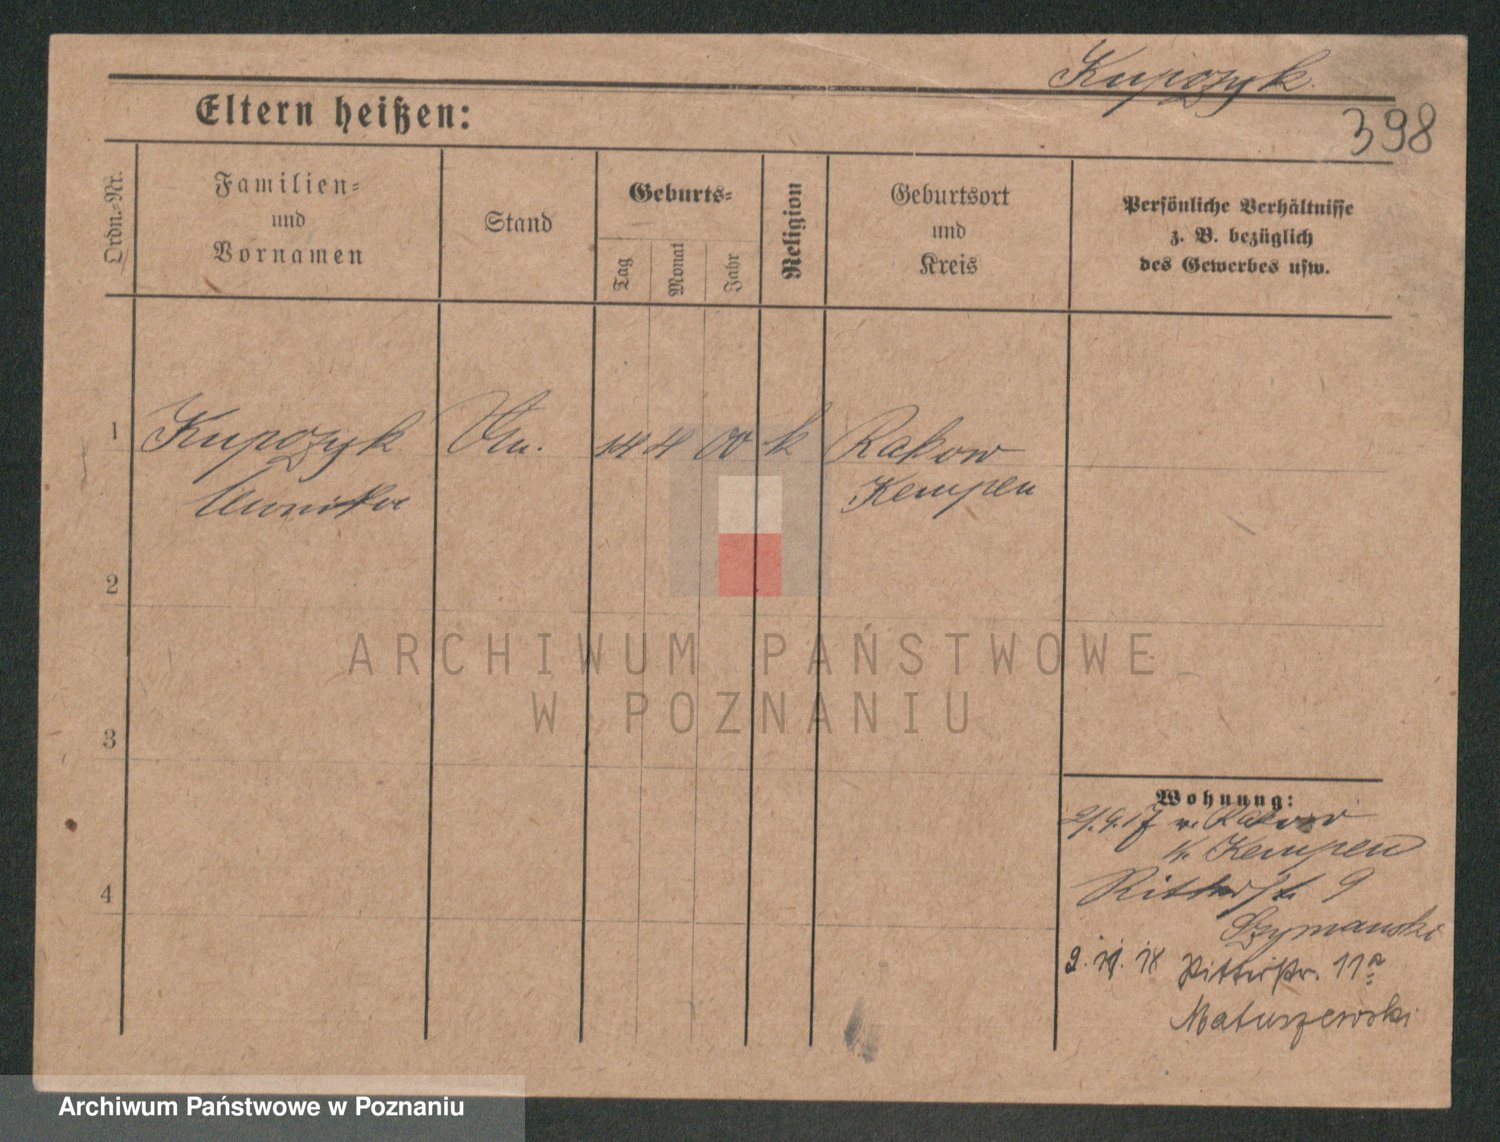 Kupczyk
Eltern heißen:
398
Ordn.-Nr.
Familien-
und
Vornamen
Stand
Geburts-
Tag
Monat
Jahr
Religion
Geburtsort
und
Kreis
Persönliche Verhältnisse
z. B. bezüglich
des Gewerbes usw.
1
Kupczyk
14 4 00 k Rakow
Kempen
2
ARCHIWUM PAŃSTWOWE
W POZNANIU
3
Wohnung:
v. Rakow
K. Kempen
4
Ritterstr. 9
Szymanski
Ritterstr. 11a
Matuszewski
Archiwum Państwowe w Poznaniu